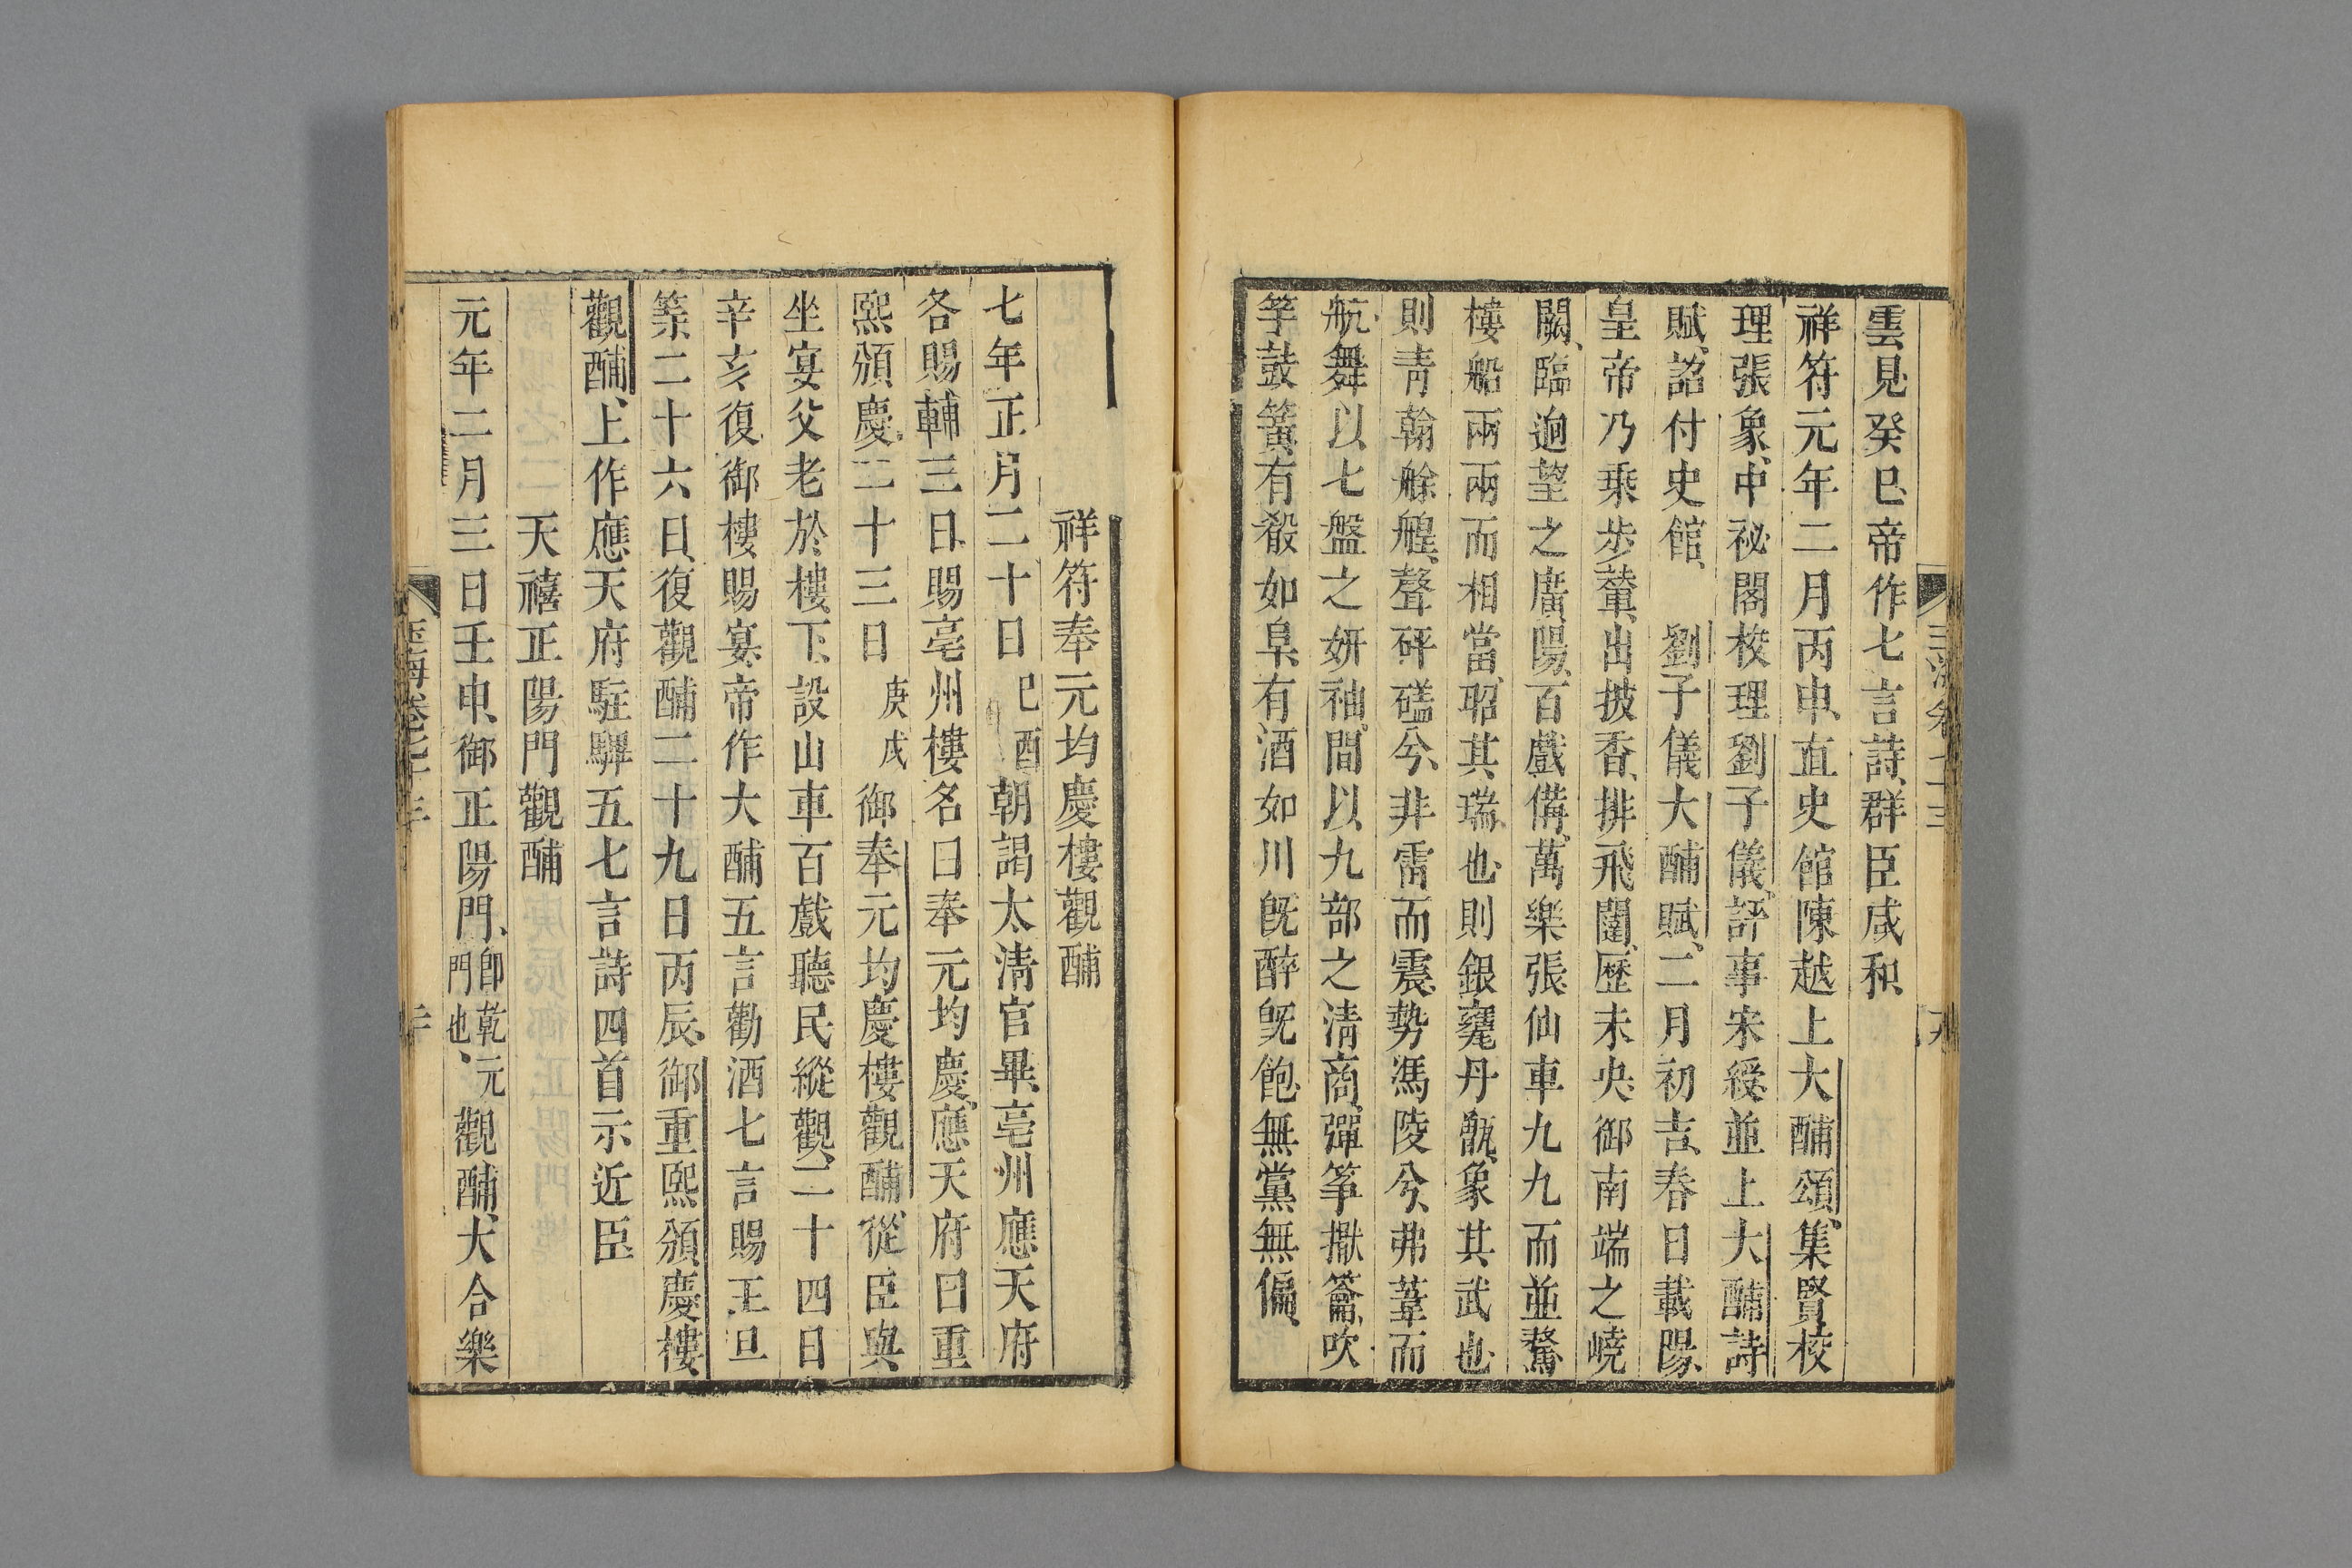 雲見癸巳帝作七言詩群臣咸和
祥符元年二月丙申直史館陳越上大酺頌集賢校
理張象中祕閣校理劉子儀評事宋綬並上大酺詩
賦詔付史館 劉子儀大酺賦二月初吉春日載陽
皇帝乃乘步輦出披香排飛闥歷未央御南端之嶢
闕臨迥望之廣陽百戲備萬樂張仙車九九而並騖
樓船兩兩而相當昭其瑞也則銀甕丹甑象其武也
則青翰艅艎聲砰礚兮非雷而震勢馮陵兮弗葦而
航舞以七盤之妍袖間以九部之清商彈箏擫籥吹
竽鼓簧有殽如阜有酒如川既醉既飽無黨無偏
祥符奉元均慶樓觀酺
七年正月二十日己酉朝謁太清宮畢亳州應天府
各賜輔三日賜亳州樓名曰奉元均慶應天府曰重
熙頒慶二十三日庚戌御奉元均慶樓觀酺從臣與
坐宴父老於樓下設山車百戲聽民縱觀二十四日
辛亥復御樓賜宴帝作大酺五言勸酒七言賜王旦
等二十六日復觀酺二十九日丙辰御重熙頒慶樓
觀酺上作應天府駐驆五七言詩四首示近臣
天禧正陽門觀酺
元年二月三日壬申御正陽門即乾元門也觀酺大合樂
玉海卷七十三